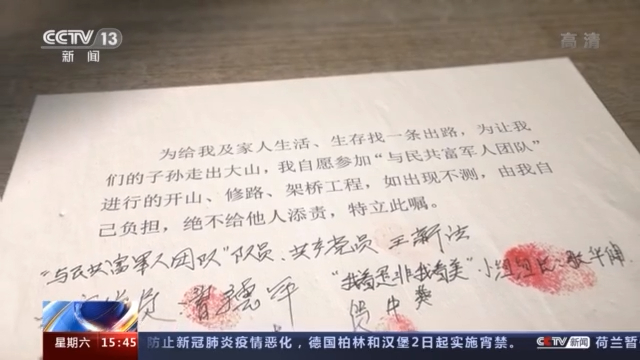 CCTV 13
新闻
高清
为给我及家人生活、生存找一条出路，为让我
们的子孙走出大山，我自愿参加“与民共富军人团队”
进行的开山、修路、架桥工程，如出现不测，由我自
己负担，绝不给他人添责，特立此嘱。
“与民共富军人团队”队员、共产党员 王新法
“我看是非我看美”小组组长：
星期六 15:45 防止新冠肺炎疫情恶化，德国柏林和汉堡2日起实施宵禁。 CCTV 新闻 荷兰暂